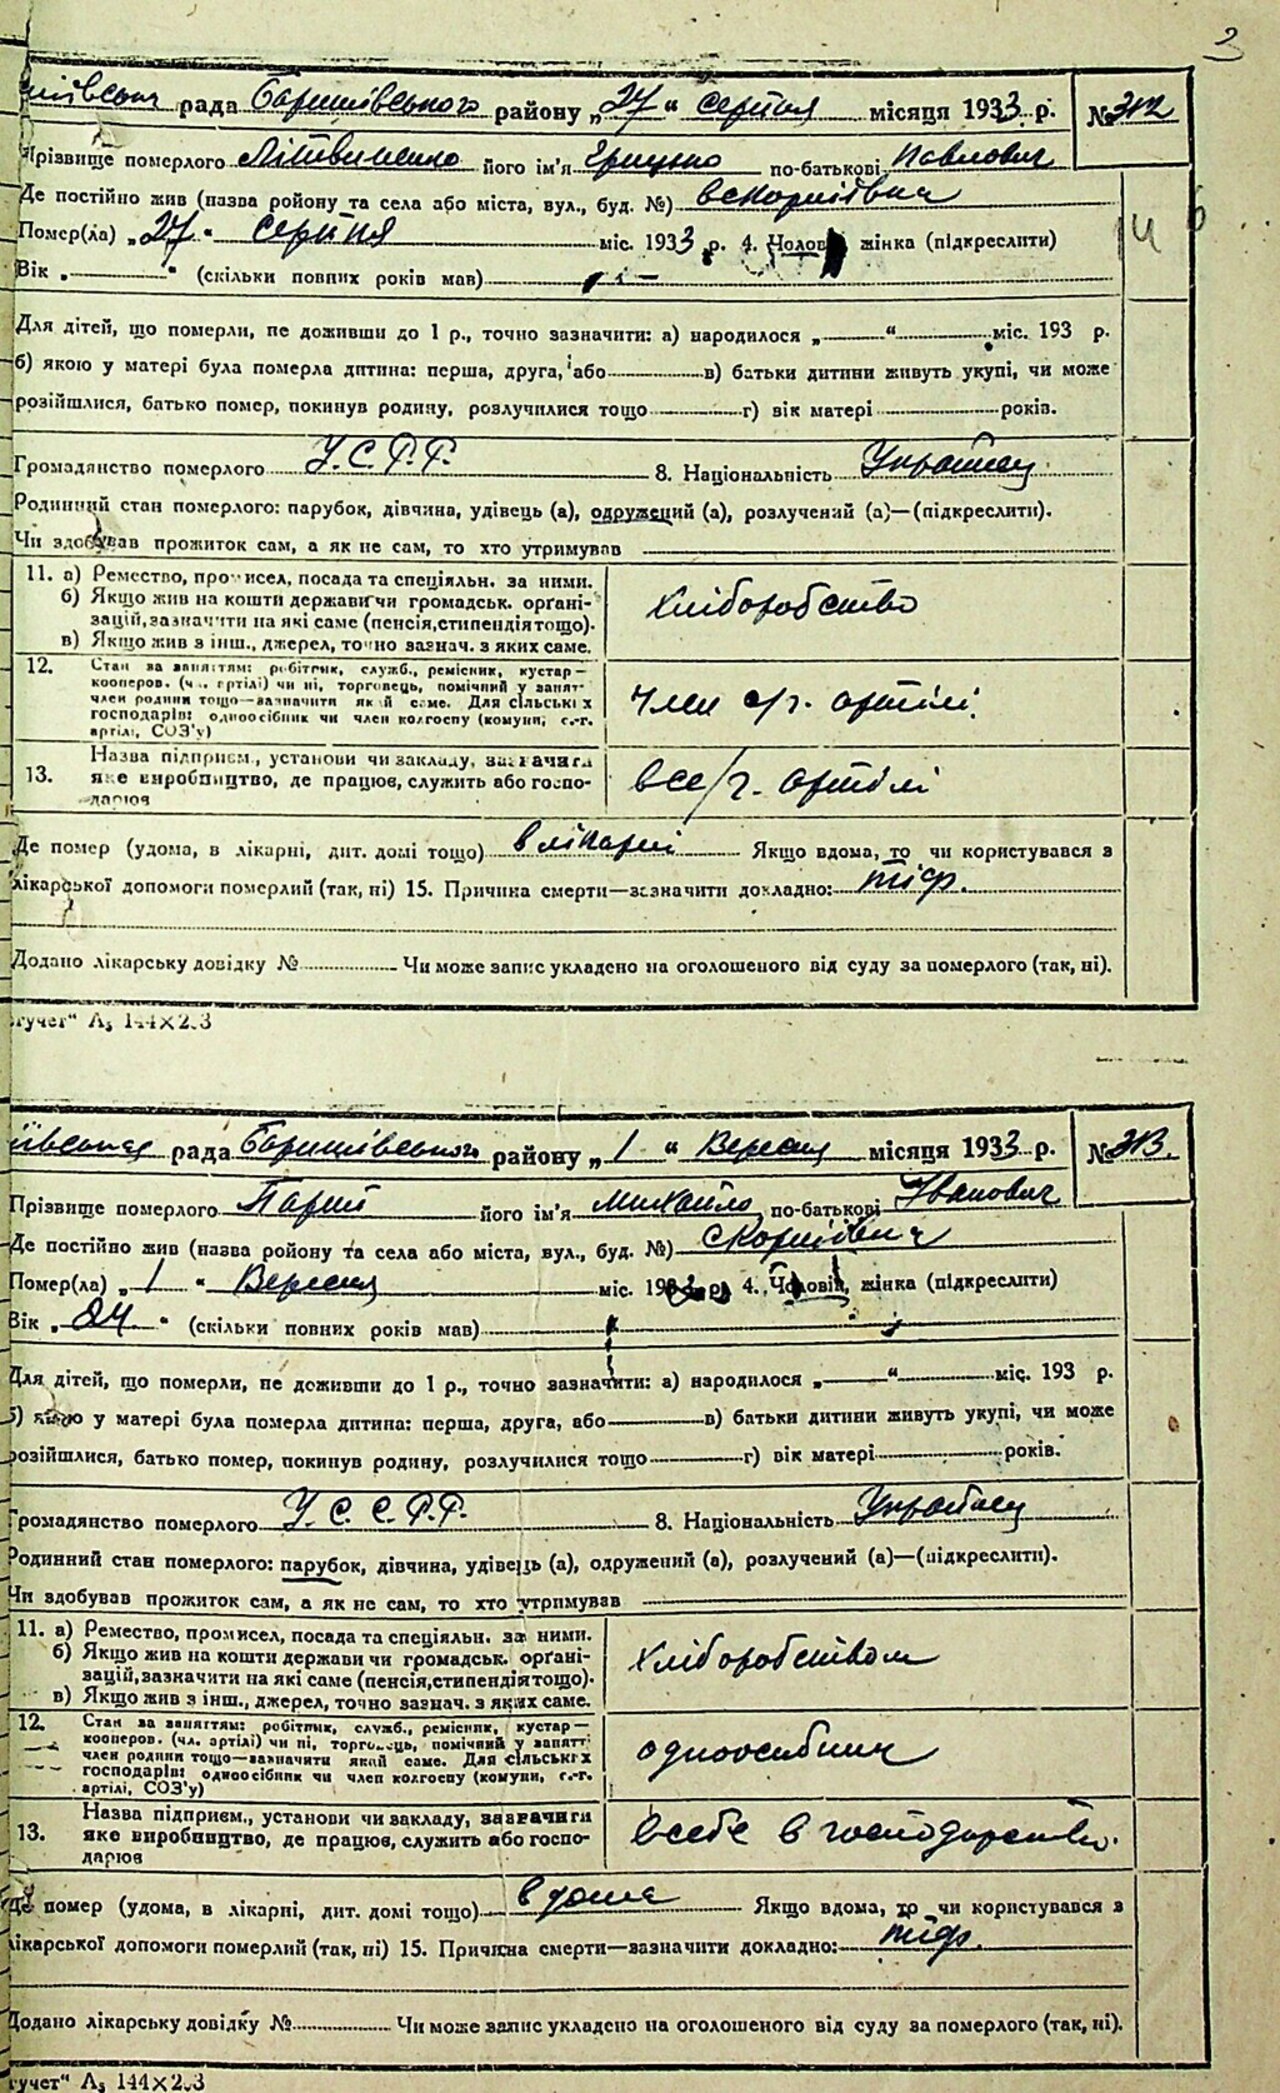 3
рада Баришівського району „27“ серпня місяця 1933 р. № 312
Прізвище померлого Літвиненко його ім'я Грицько по-батькові Павлович
Де постійно жив (назва району та села або міста, вул., буд. №) в с Корніївка
Помер(ла) „27“ серпня міс. 1933 р. 4. Чолов жінка (підкреслити)
Вік „ “ (скільки повних років мав)
Для дітей, що померли, не доживши до 1 р., точно зазначити: а) народилося „ “ міс. 193 р.
б) якою у матері була померла дитина: перша, друга, або в) батьки дитини живуть укупі, чи може
розійшлися, батько помер, покинув родину, розлучилися тощо г) вік матері років.
Громадянство померлого У.С.Р.Р. 8. Національність Українец
Родинний стан померлого: парубок, дівчина, удівець (а), одружений (а), розлучений (а)—(підкреслити).
Чи здобував прожиток сам, а як не сам, то хто утримував
11. а) Ремество, промисел, посада та спеціяльн. за ними.
б) Якщо жив на кошти держави чи громадськ. органі-
зацій, зазначити на які саме (пенсія, стипендія тощо).
в) Якщо жив з інш., джерел, точно зазнач. з яких саме.
хліборобство
12. Стан за заняттям: робітник, служб., ремісник, кустар—
кооперов. (чл. артілі) чи ні, торговець, помічний у занят-
член родини тощо—зазначити який саме. Для сільських
господарів: одноосібник чи член колгоспу (комуни, с.-г.
артілі, СОЗ'у)
член с/г. артілі.
13. Назва підприєм., установи чи закладу, зазначити
яке виробництво, де працює, служить або госпо-
дарює
в с/г. артілі
Де помер (удома, в лікарні, дит. домі тощо) в лікарні Якщо вдома, то чи користувався з
лікарської допомоги померлий (так, ні) 15. Причина смерти—зазначити докладно: тіф.
Додано лікарську довідку № Чи може запис укладено на оголошеного від суду за померлого (так, ні).
гучет“ А₅ 144×203
ївська рада Баришівського району „1“ Вересня місяця 1933 р. № 313.
Прізвище померлого Парий його ім'я Михайло по-батькові Іванович
Де постійно жив (назва району та села або міста, вул., буд. №) с Корніївка
Помер(ла) „1“ Вересня міс. 1933 р. 4. Чоловік, жінка (підкреслити)
Вік „24“ (скільки повних років мав)
Для дітей, що померли, не доживши до 1 р., точно зазначити: а) народилося „ “ міс. 193 р.
б) якою у матері була померла дитина: перша, друга, або в) батьки дитини живуть укупі, чи може
розійшлися, батько помер, покинув родину, розлучилися тощо г) вік матері років.
Громадянство померлого У.С.С.Р.Р. 8. Національність Українец
Родинний стан померлого: парубок, дівчина, удівець (а), одружений (а), розлучений (а)—(підкреслити).
Чи здобував прожиток сам, а як не сам, то хто утримував
11. а) Ремество, промисел, посада та спеціяльн. за ними.
б) Якщо жив на кошти держави чи громадськ. органі-
зацій, зазначити на які саме (пенсія, стипендія тощо).
в) Якщо жив з інш., джерел, точно зазнач. з яких саме.
хліборобством
12. Стан за заняттям: робітник, служб., ремісник, кустар—
кооперов. (чл. артілі) чи ні, торговець, помічний у занятті
член родини тощо—зазначити який саме. Для сільських
господарів: одноосібник чи член колгоспу (комуни, с.-г.
артілі, СОЗ'у)
одноосибник
13. Назва підприєм., установи чи закладу, зазначити
яке виробництво, де працює, служить або госпо-
дарює
в себе в господарстві.
Де помер (удома, в лікарні, дит. домі тощо) в дома Якщо вдома, то чи користувався з
лікарської допомоги померлий (так, ні) 15. Причина смерти—зазначити докладно: тіф.
Додано лікарську довідку № Чи може запис укладено на оголошеного від суду за померлого (так, ні).
гучет“ А₅ 144×203